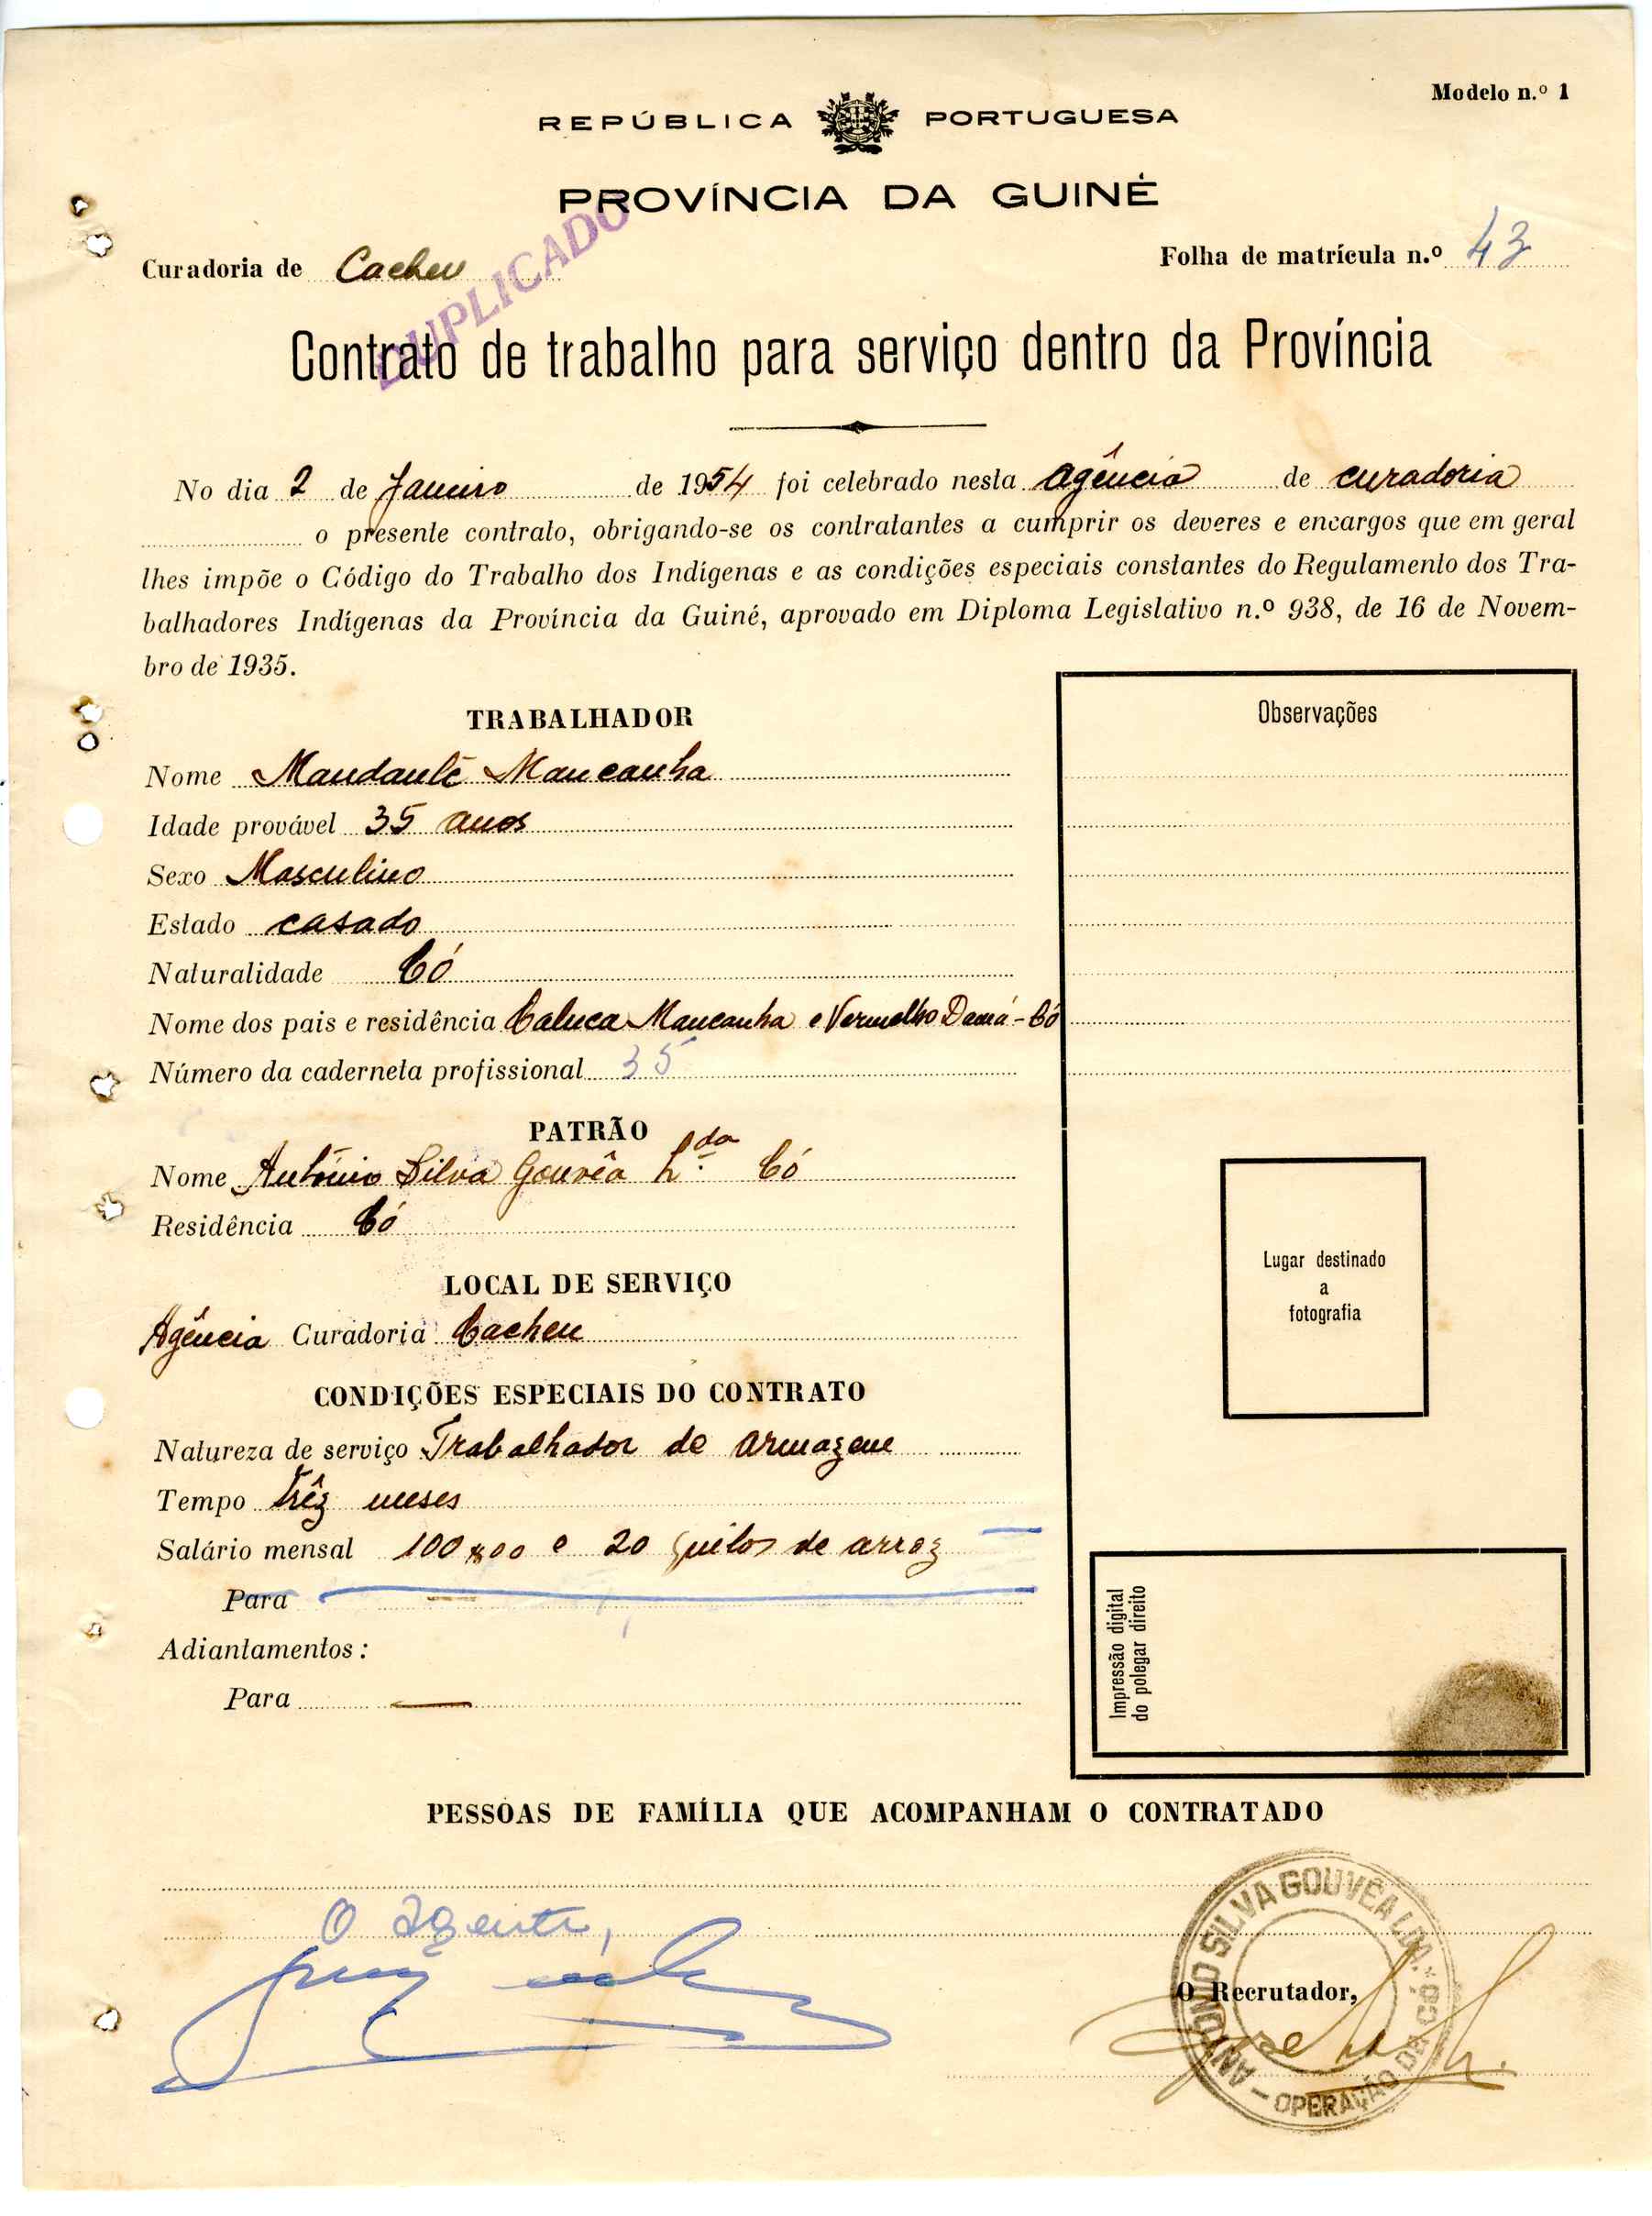 Modelo n.º 1
REPÚBLICA PORTUGUESA
PROVÍNCIA DA GUINÉ
DUPLICADO
Curadoria de Cacheu
Folha de matrícula n.º 43
Contrato de trabalho para serviço dentro da Província
No dia 2 de Janeiro de 1954 foi celebrado nesta Agência de curadoria
o presente contrato, obrigando-se os contratantes a cumprir os deveres e encargos que em geral
lhes impõe o Código do Trabalho dos Indígenas e as condições especiais constantes do Regulamento dos Tra-
balhadores Indígenas da Província da Guiné, aprovado em Diploma Legislativo n.º 938, de 16 de Novem-
bro de 1935.
TRABALHADOR
Nome Mandanlé Mancanha
Idade provável 35 anos
Sexo Masculino
Estado casado
Naturalidade Có
Nome dos pais e residência Caluca Mancanha e Vermelho Damá - Có
Número da caderneta profissional 35
Observações
PATRÃO
Nome António Silva Gouvêa L.da Có
Residência Có
LOCAL DE SERVIÇO
Agência Curadoria Cacheu
Lugar destinado
a
fotografia
CONDIÇÕES ESPECIAIS DO CONTRATO
Natureza de serviço Trabalhador de armazem
Tempo Três meses
Salário mensal 100$00 e 20 quilos de arroz
Para
Adiantamentos:
Para
Impressão digital
do polegar direito
PESSOAS DE FAMÍLIA QUE ACOMPANHAM O CONTRATADO
O agente,
O Recrutador,
ANTÓNIO SILVA GOUVÊA LDA. * - OPERAÇÃO DE CÓ